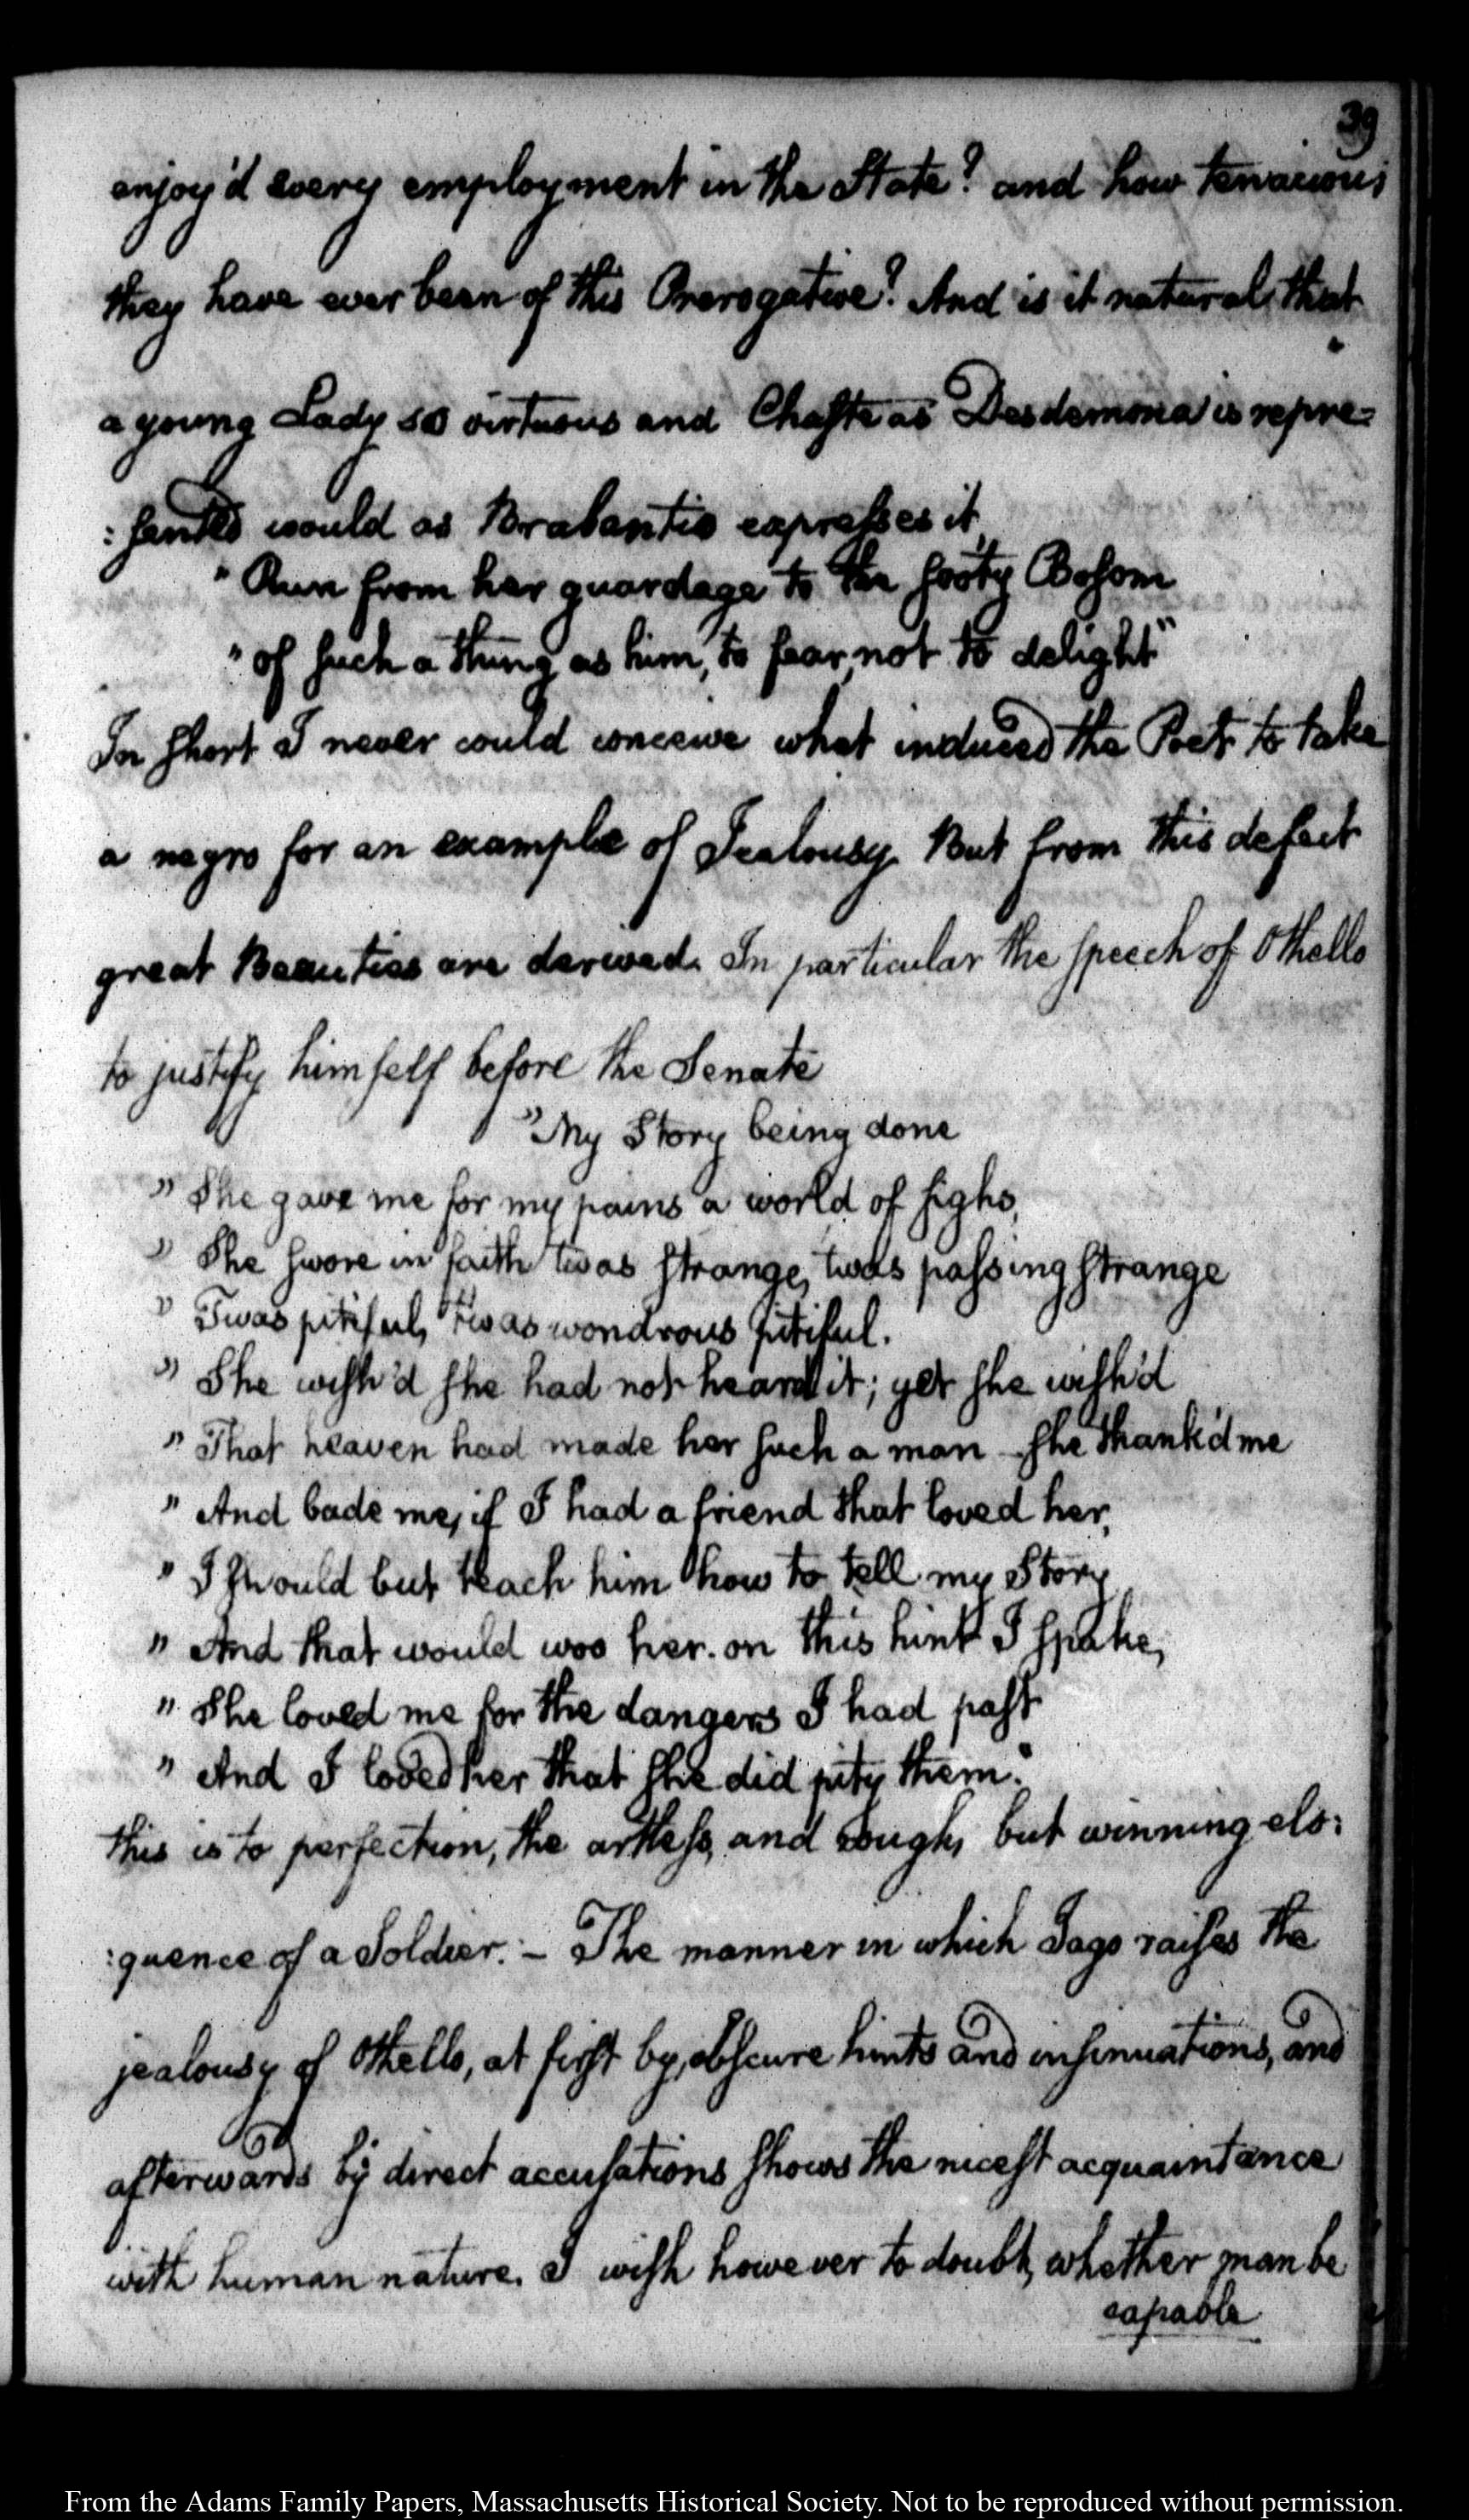 39
enjoy'd every employment in the State? and how tenacious
they have ever been of this Prerogative? And is it natural, that
a young Lady so virtuous and Chaste as Desdemona is repre=
:sented would as Brabantio expresses it,
" Run from her guardage to the sooty Bosom
" of such a thing as him, to fear, not to delight"
In short I never could conceive what induced the Poet to take
a negro for an example of Jealousy. But from this defect
great Beauties are derived. In particular the speech of Othello
to justify himself before the Senate
"My Story being done
" She gave me for my pains a world of sighs,
" She swore in faith twas strange, twas passing strange
" Twas pitiful, twas wondrous pitiful.
" She wish'd she had not heard it; yet she wish'd
" That heaven had made her such a man she thank'd me
" And bade me, if I had a friend that loved her,
" I should but teach him how to tell my Story
" And that would woo her. on this hint I spake,
" She loved me for the dangers I had past
" And I loved her that she did pity them."
this is to perfection, the artless, and rough, but winning elo:
:quence of a Soldier. – The manner in which Iago raises the
jealousy of Othello, at first by obscure hints and insinuations, and
afterwards by direct accusations shows the nicest acquaintance
with human nature. I wish however to doubt, whether man be
capable
From the Adams Family Papers, Massachusetts Historical Society. Not to be reproduced without permission.